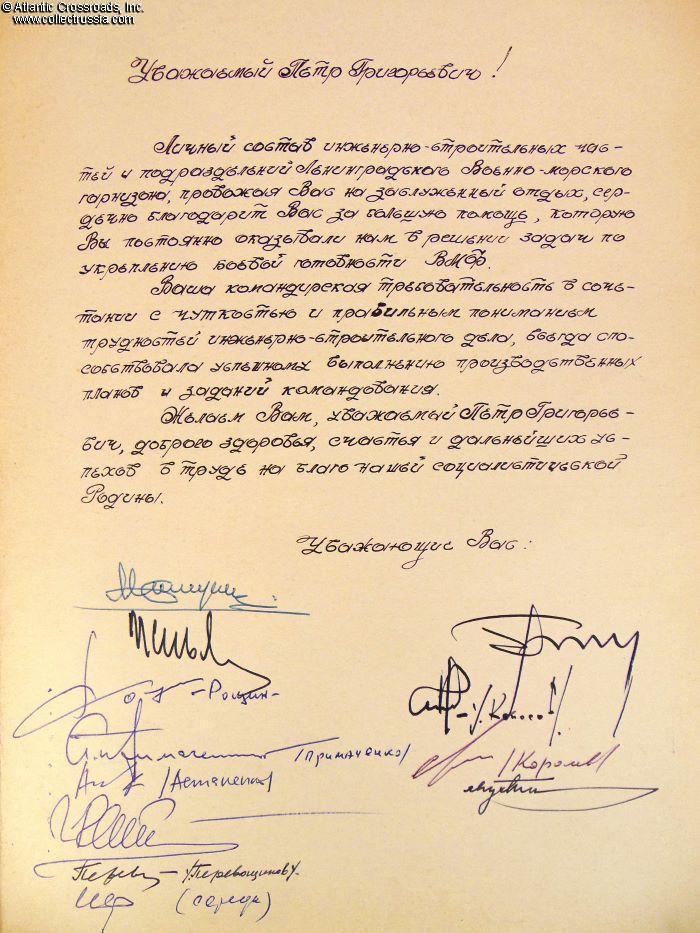 © Atlantic Crossroads, Inc.
www.collectrussia.com
Уважаемый Петр Григорьевич!
Личный состав инженерно-строительных час-
тей и подразделений Ленинградского Военно-морского
гарнизона, провожая Вас на заслуженный отдых, сер-
дечно благодарит Вас за большую помощь, которую
Вы постоянно оказывали нам в решении задач по
укреплению боевой готовности ВМФ.
Ваша командирская требовательность в соче-
тании с чуткостью и правильным пониманием
трудностей инженерно-строительного дела, всегда спо-
собствовала успешному выполнению производственных
планов и заданий командования.
Желаем Вам, уважаемый Петр Григорье-
вич, доброго здоровья, счастья и дальнейших ус-
пехов в труде на благо нашей социалистической
Родины.
Уважающие Вас:
-Рощин-
/Примаченко/
/Король/
/Перевощиков/
(середа)